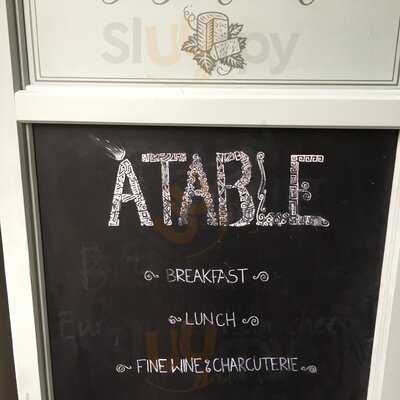 Sluurpy
ÀTABLE
BREAKFAST
LUNCH
FINE WINE & CHARCUTERIE